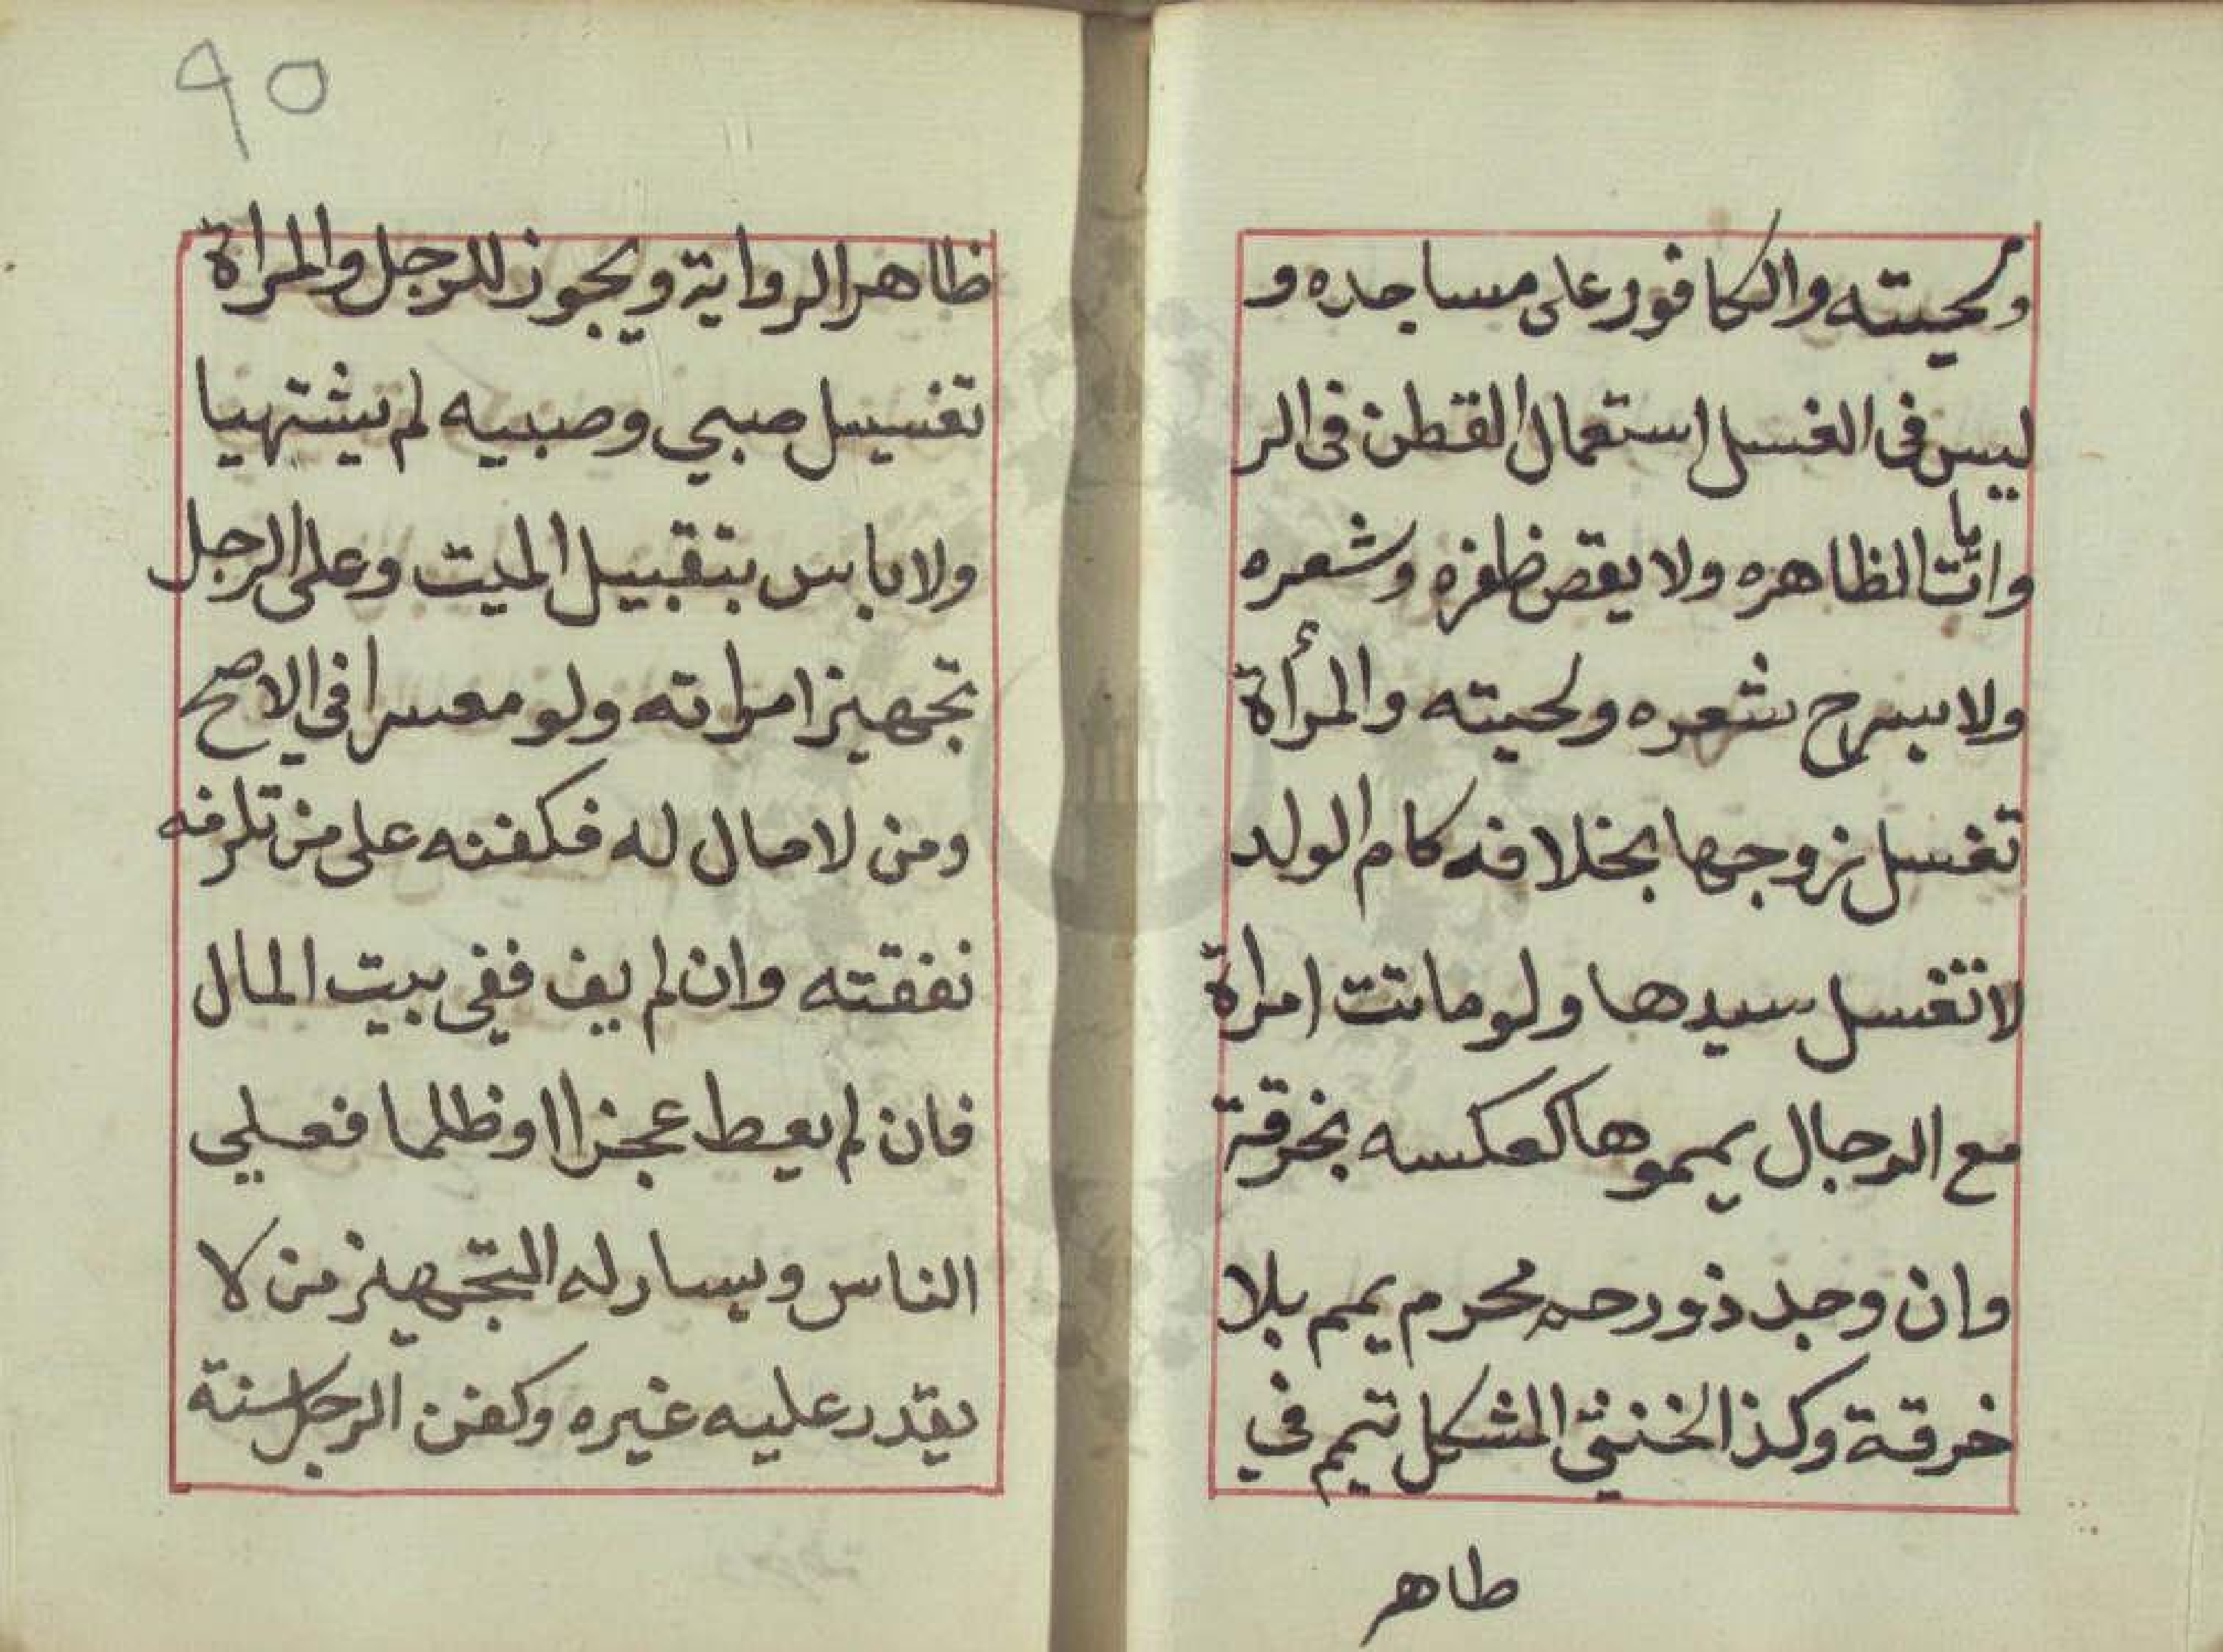 ولحيته والكافور على مساجده و
ليس في الغسل استعمال القطن في الر
وايات الظاهره ولا يقص ظفره وشعره
ولا يسرح شعره ولحيته والمرأة
تغسل زوجها بخلافه كام الولد
لا تغسل سيدها ولو ماتت امراة
مع الرجال يمموها كعكسه بخرقة
وان وجد ذو رحم محرم يمم بلا
خرقة وكذا الخنثى المشكل تيمم في
طاهر
٩٥
ظاهر الرواية ويجوز للرجل والمراة
تغسيل صبي وصبيه لم يشتهيا
ولا باس بتقبيل الميت وعلى الرجل
تجهيز امراته ولو معسرا في الاصح
ومن لا مال له فكفنه على من تلزمه
نفقته وان لم يف ففي بيت المال
فان لم يعط عجزا او ظلما فعلي
الناس ويسار له التجهيز من لا
يقدر عليه غيره وكفن الرجل سنة